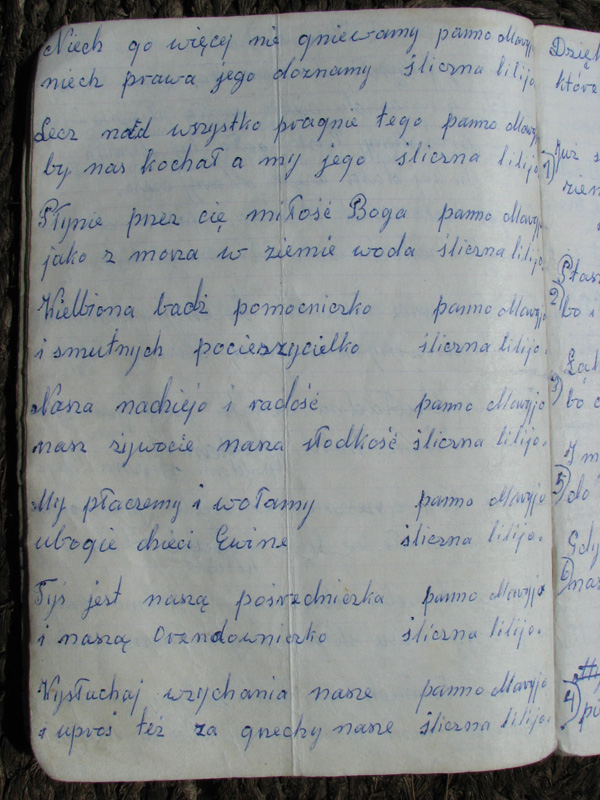 Niech go więcej nie gniewamy panno Maryjo
niech prawa jego doznamy śliczna lilijo.
Lecz nad wszystko pragnie tego panno Maryjo
by nas kochał a my jego śliczna lilijo.
Płynie przez cię miłość Boga panno Maryjo
jako z morza w ziemie woda śliczna lilijo.
Wielbiona badź pomocniczko panno Maryjo
i smutnych pocieszycielko śliczna lilijo.
Nasza nadziejo i radość panno Maryjo
nasz żywocie nasza słodkość śliczna lilijo.
My płaczemy i wołamy panno Maryjo
ubogie dzieci Ewine śliczna lilijo.
Tyś jest naszą pośrzedniczka panno Maryjo
i naszą Orzndowniczko śliczna lilijo.
Wysłuchaj wzychania nasze panno Maryjo
i uproś też za grzechy nasze śliczna lilijo.
Dzięk
które
1) Już s
ziem
Ptas
2) bo i
3)
bo
I m
5) do
Gdy
6) nas
4)